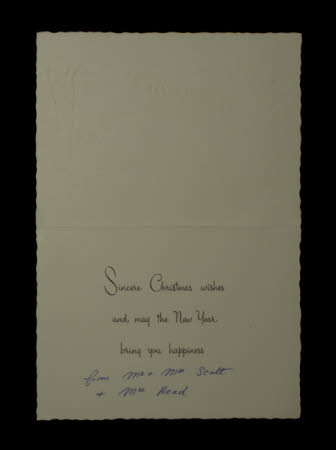 Sincere Christmas wishes
and may the New Year
bring you happiness
from Mr & Mrs Scott
+ Mrs Read